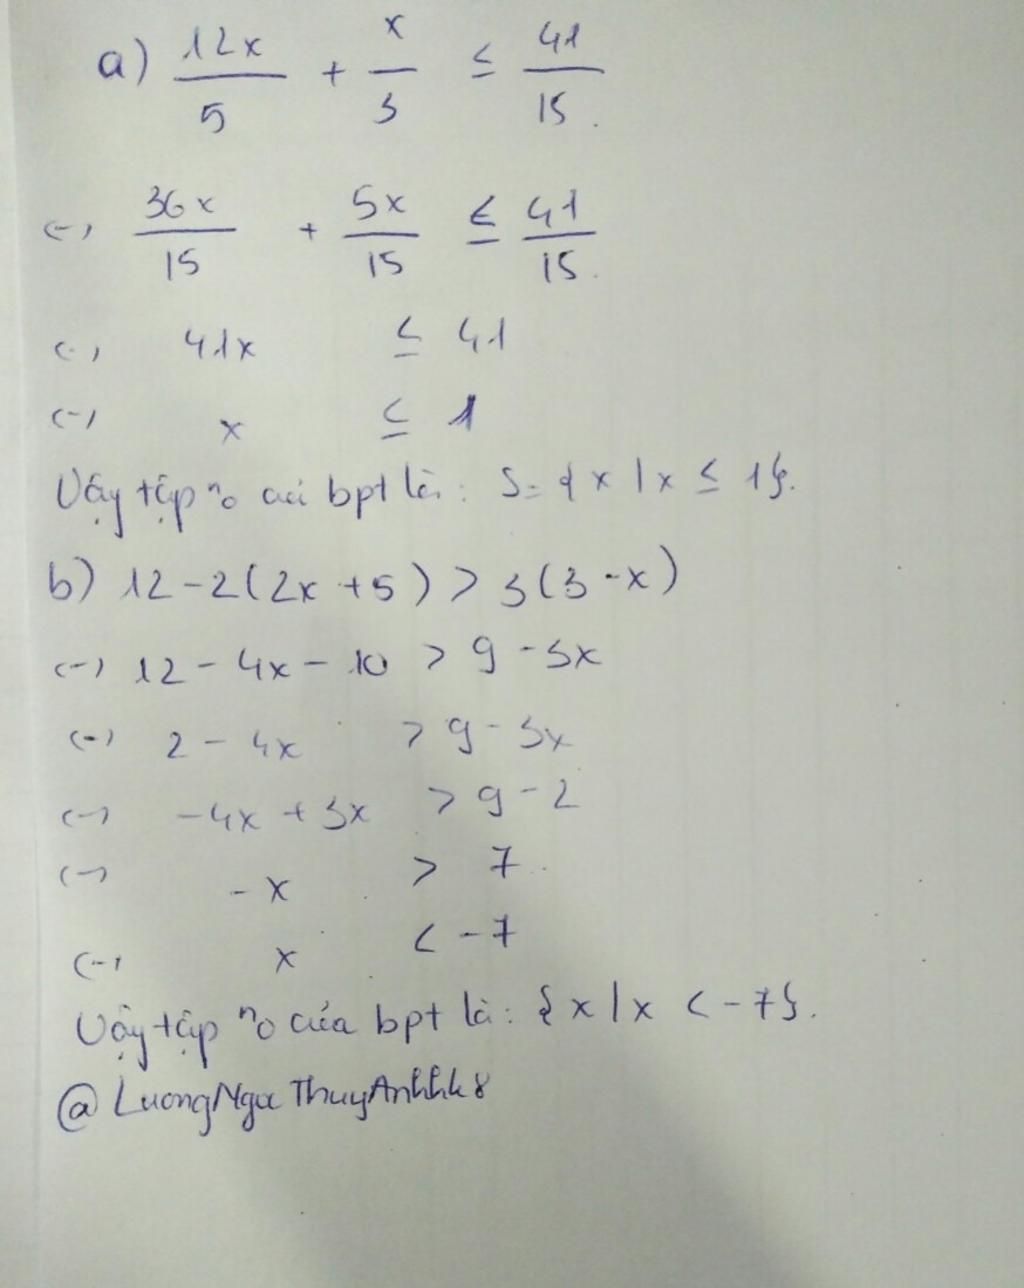 a) 12x/5 + x/3 ≤ 41/15.
(-) 36x/15 + 5x/15 ≤ 41/15.
(-) 41x ≤ 41
(-) x ≤ 1
Vậy tập n0 của bpt là: S = {x | x ≤ 1}.
b) 12 - 2(2x + 5) > 3(3 - x)
(-) 12 - 4x - 10 > 9 - 3x
(-) 2 - 4x > 9 - 3x
(-) -4x + 3x > 9 - 2
(-) -x > 7
(-) x < -7
Vậy tập n0 của bpt là: {x | x < -7}.
@ LuongNgu ThuyAnhhk8